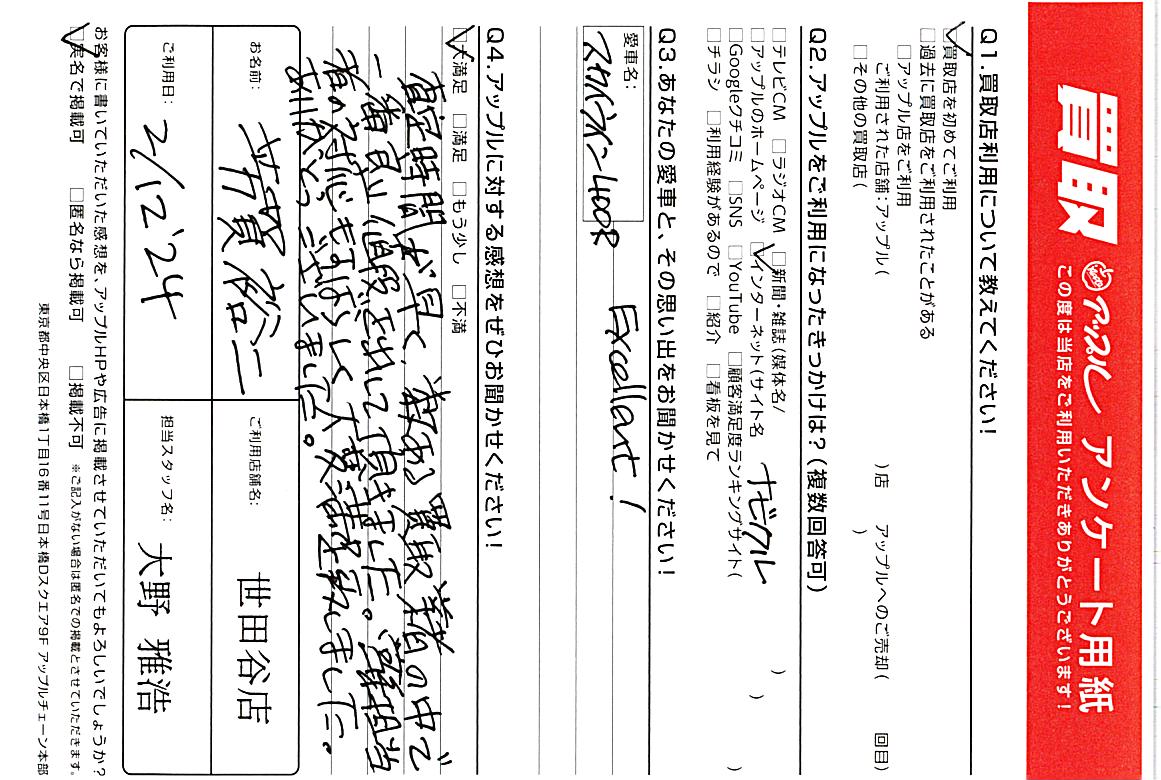 買取
アップル アンケート用紙
この度は当店をご利用いただきありがとうございます!
Q1.買取店利用について教えてください!
□買取店を初めてご利用
□過去に買取店をご利用されたことがある
□アップル店をご利用
ご利用された店舗:アップル( )店 アップルへのご売却( 回目)
□その他の買取店( )
Q2.アップルをご利用になったきっかけは?(複数回答可)
□テレビCM □ラジオCM □新聞・雑誌(媒体名/ )
□アップルのホームページ □インターネット(サイト名 ナビクル )
□Googleクチコミ □SNS □YouTube □顧客満足度ランキングサイト( )
□チラシ □利用経験があるので □紹介 □看板を見て
Q3.あなたの愛車と、その思い出をお聞かせください!
愛車名:
スカイライン400R Excellart!
Q4.アップルに対する感想をぜひお聞かせください!
□大満足 □満足 □もう少し □不満
査定時間が早く、数ある買取業者の中で
一番良い値段をされて頂きました。御担当
者の対応も素晴らしく大変満足致しました。
ありがとうございました。
お名前: 芳賀裕二
ご利用店舗名: 世田谷店
ご利用日: 2/12'24
担当スタッフ名: 大野 雅浩
お客様に書いていただいた感想を、アップルHPや広告に掲載させていただいてもよろしいでしょうか?
□実名で掲載可 □匿名なら掲載可 □掲載不可 ※ご記入がない場合は匿名での掲載とさせていただきます。
東京都中央区日本橋1丁目16番11号日本橋Dスクエア9F アップルチェーン本部